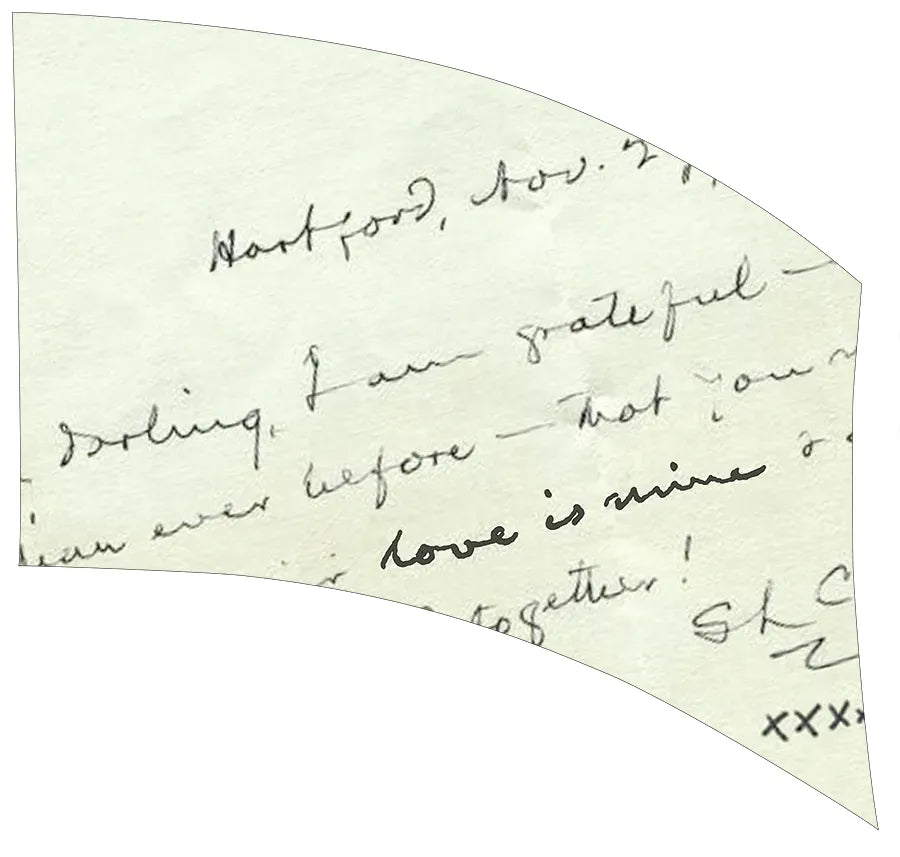 Hartford, Nov. 2
darling, I am grateful —
than ever before — that you
love is mine &
together!
SLC
xxxx